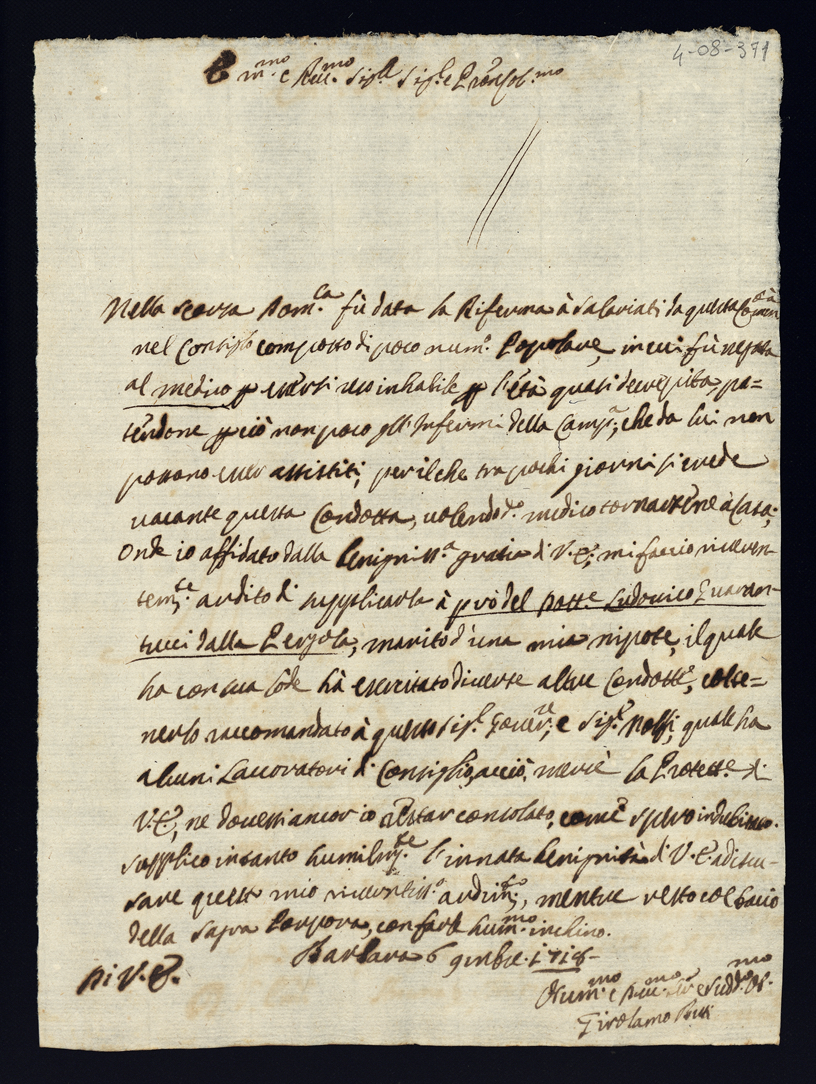 4-08-391
E.mo e Rev.mo Sig.re Sig.re e Pron Col.mo
Nella scorsa Dom.ca fù data la Rifferma à Salariati da questa Comun.tà
nel Consiglo composto di poco num.o Popolare, in cui fù negata
al medico p essersi reso inhabile p l'età quasi decrepita, pa=
tendone p ciò non poco gl'Infermi della Camp.a, che da lui non
possono esser assistiti; per il che tra pochi giorni si crede
vacante questa Condotta, volendo d.o medico tornarsene à Casa;
Onde io affidato dalla benigniss.a gratia di V. E., mi faccio riveren
tem.te ardito di supplicarla à prò del Dott.e Ludovico Guaran-
tucci dalla Pergola, marito d'una mia nipote, il quale
ha con sua lode hà esercitato diverse altre Condotte, e
nerlo raccomandato à questo Sig.r Gover.re, e Sig.r Noffi, quale ha
alcuni Lavoratori di Consiglio, acciò, mercè la Protett.e di
V. E., ne dovessi ancor io restar consolato, come spero indubitato.
supplico intanto humilm.te l'innata benignità di V. E. à discu-
sare questo mio riverentiss.o ardim.to, mentre resto col bacio
della Sagra Porpora, con farle hum.mo inchino.
Barbara 6 9mbre 1718
Di V. E.
Hum.mo e Dev.mo Ser.e e Sudd.o Or.mo
Girolamo